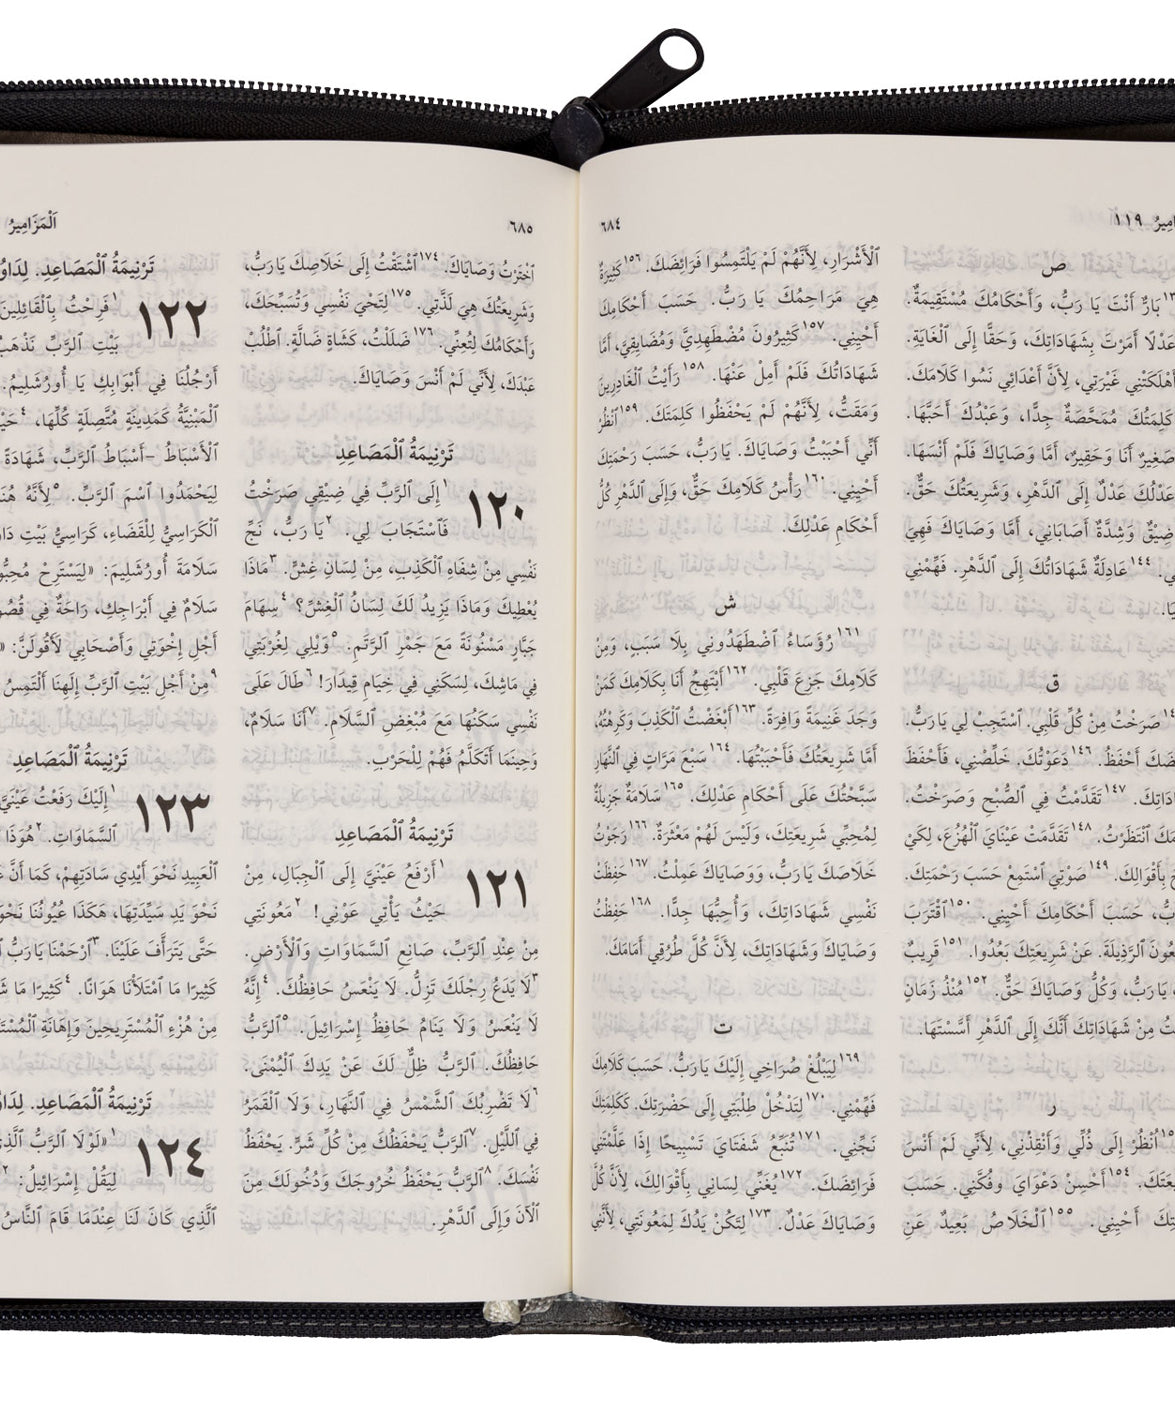 ١١٩
٦٨٤
ص
بَارٌّ أَنْتَ يَا رَبُّ، وَأَحْكَامُكَ مُسْتَقِيمَةٌ.
عَدْلًا أَمَرْتَ بِشَهَادَاتِكَ، وَحَقًّا إِلَى ٱلْغَايَةِ.
أَهْلَكَتْنِي غَيْرَتِي، لِأَنَّ أَعْدَائِي نَسُوا كَلَامَكَ.
كَلِمَتُكَ مُمَحَّصَةٌ جِدًّا، وَعَبْدُكَ أَحَبَّهَا.
صَغِيرٌ أَنَا وَحَقِيرٌ، أَمَّا وَصَايَاكَ فَلَمْ أَنْسَهَا.
عَدْلُكَ عَدْلٌ إِلَى ٱلدَّهْرِ، وَشَرِيعَتُكَ حَقٌّ.
ضِيْقٌ وَشِدَّةٌ أَصَابَانِي، أَمَّا وَصَايَاكَ فَهِيَ
١٤٤ عَادِلَةٌ شَهَادَاتُكَ إِلَى ٱلدَّهْرِ. فَهِّمْنِي
ق
صَرَخْتُ مِنْ كُلِّ قَلْبِي. ٱسْتَجِبْ لِي يَارَبُّ.
أَحْفَظُ. ١٤٦ دَعَوْتُكَ. خَلِّصْنِي، فَأَحْفَظَ
١٤٧ تَقَدَّمْتُ فِي ٱلصُّبْحِ وَصَرَخْتُ.
ٱنْتَظَرْتُ. ١٤٨ تَقَدَّمَتْ عَيْنَايَ ٱلْهُزُعَ، لِكَيْ
بِأَقْوَالِكَ. ١٤٩ صَوْتِيَ ٱسْتَمِعْ حَسَبَ رَحْمَتِكَ.
حَسَبَ أَحْكَامِكَ أَحْيِنِي. ١٥٠ ٱقْتَرَبَ
ٱلرَّذِيلَةَ. عَنْ شَرِيعَتِكَ بَعُدُوا. ١٥١ قَرِيبٌ
يَا رَبُّ، وَكُلُّ وَصَايَاكَ حَقٌّ. ١٥٢ مُنْذُ زَمَانٍ
مِنْ شَهَادَاتِكَ أَنَّكَ إِلَى ٱلدَّهْرِ أَسَّسْتَهَا.
ر
ٱنْظُرْ إِلَى ذُلِّي وَأَنْقِذْنِي، لِأَنِّي لَمْ أَنْسَ
١٥٤ أَحْسِنْ دَعْوَايَ وَفُكَّنِي. حَسَبَ
أَحْيِنِي. ١٥٥ ٱلْخَلَاصُ بَعِيدٌ عَنِ
ٱلْأَشْرَارِ، لِأَنَّهُمْ لَمْ يَلْتَمِسُوا فَرَائِضَكَ. ١٥٦ كَثِيرَةٌ
هِيَ مَرَاحِمُكَ يَا رَبُّ. حَسَبَ أَحْكَامِكَ
أَحْيِنِي. ١٥٧ كَثِيرُونَ مُضْطَهِدِيَّ وَمُضَايِقِيَّ، أَمَّا
شَهَادَاتُكَ فَلَمْ أَمِلْ عَنْهَا. ١٥٨ رَأَيْتُ ٱلْغَادِرِينَ
وَمَقَتُّ، لِأَنَّهُمْ لَمْ يَحْفَظُوا كَلِمَتَكَ. ١٥٩ ٱنْظُرْ
أَنِّي أَحْبَبْتُ وَصَايَاكَ. يَارَبُّ، حَسَبَ رَحْمَتِكَ
أَحْيِنِي. ١٦٠ رَأْسُ كَلَامِكَ حَقٌّ، وَإِلَى ٱلدَّهْرِ كُلُّ
أَحْكَامِ عَدْلِكَ.
ش
١٦١ رُؤَسَاءُ ٱضْطَهَدُونِي بِلَا سَبَبٍ، وَمِنْ
كَلَامِكَ جَزِعَ قَلْبِي. ١٦٢ أَبْتَهِجُ أَنَا بِكَلَامِكَ كَمَنْ
وَجَدَ غَنِيمَةً وَافِرَةً. ١٦٣ أَبْغَضْتُ ٱلْكَذِبَ وَكَرِهْتُهُ،
أَمَّا شَرِيعَتُكَ فَأَحْبَبْتُهَا. ١٦٤ سَبْعَ مَرَّاتٍ فِي ٱلنَّهَارِ
سَبَّحْتُكَ عَلَى أَحْكَامِ عَدْلِكَ. ١٦٥ سَلَامَةٌ جَزِيلَةٌ
لِمُحِبِّي شَرِيعَتِكَ، وَلَيْسَ لَهُمْ مَعْثَرَةٌ. ١٦٦ رَجَوْتُ
خَلَاصَكَ يَارَبُّ، وَوَصَايَاكَ عَمِلْتُ. ١٦٧ حَفِظَتْ
نَفْسِي شَهَادَاتِكَ، وَأُحِبُّهَا جِدًّا. ١٦٨ حَفِظْتُ
وَصَايَاكَ وَشَهَادَاتِكَ، لِأَنَّ كُلَّ طُرُقِي أَمَامَكَ.
ت
١٦٩ لِيَبْلُغْ صُرَاخِي إِلَيْكَ يَارَبُّ. حَسَبَ كَلَامِكَ
فَهِّمْنِي. ١٧٠ لِتَدْخُلْ طِلْبَتِي إِلَى حَضْرَتِكَ. كَكَلِمَتِكَ
نَجِّنِي. ١٧١ تُنَبِّعُ شَفَتَايَ تَسْبِيحًا إِذَا عَلَّمْتَنِي
فَرَائِضَكَ. ١٧٢ يُغَنِّي لِسَانِي بِأَقْوَالِكَ، لِأَنَّ كُلَّ
وَصَايَاكَ عَدْلٌ. ١٧٣ لِتَكُنْ يَدُكَ لِمَعُونَتِي، لِأَنَّنِي
٦٨٥
اَلْمَزَامِيرُ
ٱخْتَرْتُ وَصَايَاكَ. ١٧٤ ٱشْتَقْتُ إِلَى خَلَاصِكَ يَارَبُّ،
وَشَرِيعَتُكَ هِيَ لَذَّتِي. ١٧٥ لِتَحْيَ نَفْسِي وَتُسَبِّحَكَ،
وَأَحْكَامُكَ لِتُعِنِّي. ١٧٦ ضَلَلْتُ، كَشَاةٍ ضَالَّةٍ. ٱطْلُبْ
عَبْدَكَ، لِأَنِّي لَمْ أَنْسَ وَصَايَاكَ.
تَرْنِيمَةُ ٱلْمَصَاعِدِ
١٢٠ ١ إِلَى ٱلرَّبِّ فِي ضِيْقِي صَرَخْتُ
فَٱسْتَجَابَ لِي. ٢ يَا رَبُّ، نَجِّ
نَفْسِي مِنْ شِفَاهِ ٱلْكَذِبِ، مِنْ لِسَانِ غِشٍّ. ٣ مَاذَا
يُعْطِيكَ وَمَاذَا يَزِيدُ لَكَ لِسَانُ ٱلْغِشِّ؟ ٤ سِهَامَ
جَبَّارٍ مَسْنُونَةً مَعَ جَمْرِ ٱلرَّتَمِ. ٥ وَيْلِي لِغُرْبَتِي
فِي مَاشِكَ، لِسَكَنِي فِي خِيَامِ قِيدَارَ! ٦ طَالَ عَلَى
نَفْسِي سَكَنُهَا مَعَ مُبْغِضِ ٱلسَّلَامِ. ٧ أَنَا سَلَامٌ،
وَحِينَمَا أَتَكَلَّمُ فَهُمْ لِلْحَرْبِ.
تَرْنِيمَةُ ٱلْمَصَاعِدِ
١٢١ ١ أَرْفَعُ عَيْنَيَّ إِلَى ٱلْجِبَالِ، مِنْ
حَيْثُ يَأْتِي عَوْنِي! ٢ مَعُونَتِي
مِنْ عِنْدِ ٱلرَّبِّ، صَانِعِ ٱلسَّمَاوَاتِ وَٱلْأَرْضِ.
٣ لَا يَدَعُ رِجْلَكَ تَزِلُّ. لَا يَنْعَسُ حَافِظُكَ. ٤ إِنَّهُ
لَا يَنْعَسُ وَلَا يَنَامُ حَافِظُ إِسْرَائِيلَ. ٥ ٱلرَّبُّ
حَافِظُكَ. ٱلرَّبُّ ظِلٌّ لَكَ عَنْ يَدِكَ ٱلْيُمْنَى.
٦ لَا تَضْرِبُكَ ٱلشَّمْسُ فِي ٱلنَّهَارِ، وَلَا ٱلْقَمَرُ
فِي ٱللَّيْلِ. ٧ ٱلرَّبُّ يَحْفَظُكَ مِنْ كُلِّ شَرٍّ. يَحْفَظُ
نَفْسَكَ. ٨ ٱلرَّبُّ يَحْفَظُ خُرُوجَكَ وَدُخُولَكَ مِنَ
ٱلْآنَ وَإِلَى ٱلدَّهْرِ.
تَرْنِيمَةُ ٱلْمَصَاعِدِ.
١٢٢ ١ فَرِحْتُ بِٱلْقَائِلِينَ
بَيْتِ ٱلرَّبِّ نَذْهَبُ
أَرْجُلُنَا فِي أَبْوَابِكِ يَا أُورُشَلِيمُ.
ٱلْمَبْنِيَّةُ كَمَدِينَةٍ مُتَّصِلَةٍ كُلِّهَا، ٤
ٱلْأَسْبَاطُ -أَسْبَاطُ ٱلرَّبِّ، شَهَادَةً
لِيَحْمَدُوا ٱسْمَ ٱلرَّبِّ. ٥ لِأَنَّهُ
ٱلْكَرَاسِيُّ لِلْقَضَاءِ، كَرَاسِيُّ بَيْتِ
سَلَامَةَ أُورُشَلِيمَ: «لِيَسْتَرِحْ
سَلَامٌ فِي أَبْرَاجِكِ، رَاحَةٌ فِي
أَجْلِ إِخْوَتِي وَأَصْحَابِي لَأَقُولَنَّ:
٩ مِنْ أَجْلِ بَيْتِ ٱلرَّبِّ إِلَهِنَا أَلْتَمِسُ
تَرْنِيمَةُ ٱلْمَصَاعِدِ
١٢٣ ١ إِلَيْكَ رَفَعْتُ عَيْنَيَّ
ٱلسَّمَاوَاتِ. ٢ هُوَذَا
ٱلْعَبِيدِ نَحْوَ أَيْدِي سَادَتِهِمْ، كَمَا أَنَّ
نَحْوَ يَدِ سَيِّدَتِهَا، هَكَذَا عُيُونُنَا نَحْوَ
حَتَّى يَتَرَأَّفَ عَلَيْنَا. ٣ ٱرْحَمْنَا يَارَبُّ
كَثِيرًا مَا ٱمْتَلَأْنَا هَوَانًا. ٤ كَثِيرًا مَا
مِنْ هُزْءِ ٱلْمُسْتَرِيحِينَ وَإِهَانَةِ
تَرْنِيمَةُ ٱلْمَصَاعِدِ.
١٢٤ ١ «لَوْلَا ٱلرَّبُّ
لِيَقُلْ إِسْرَائِيلُ: ٢
ٱلَّذِي كَانَ لَنَا عِنْدَمَا قَامَ ٱلنَّاسُ